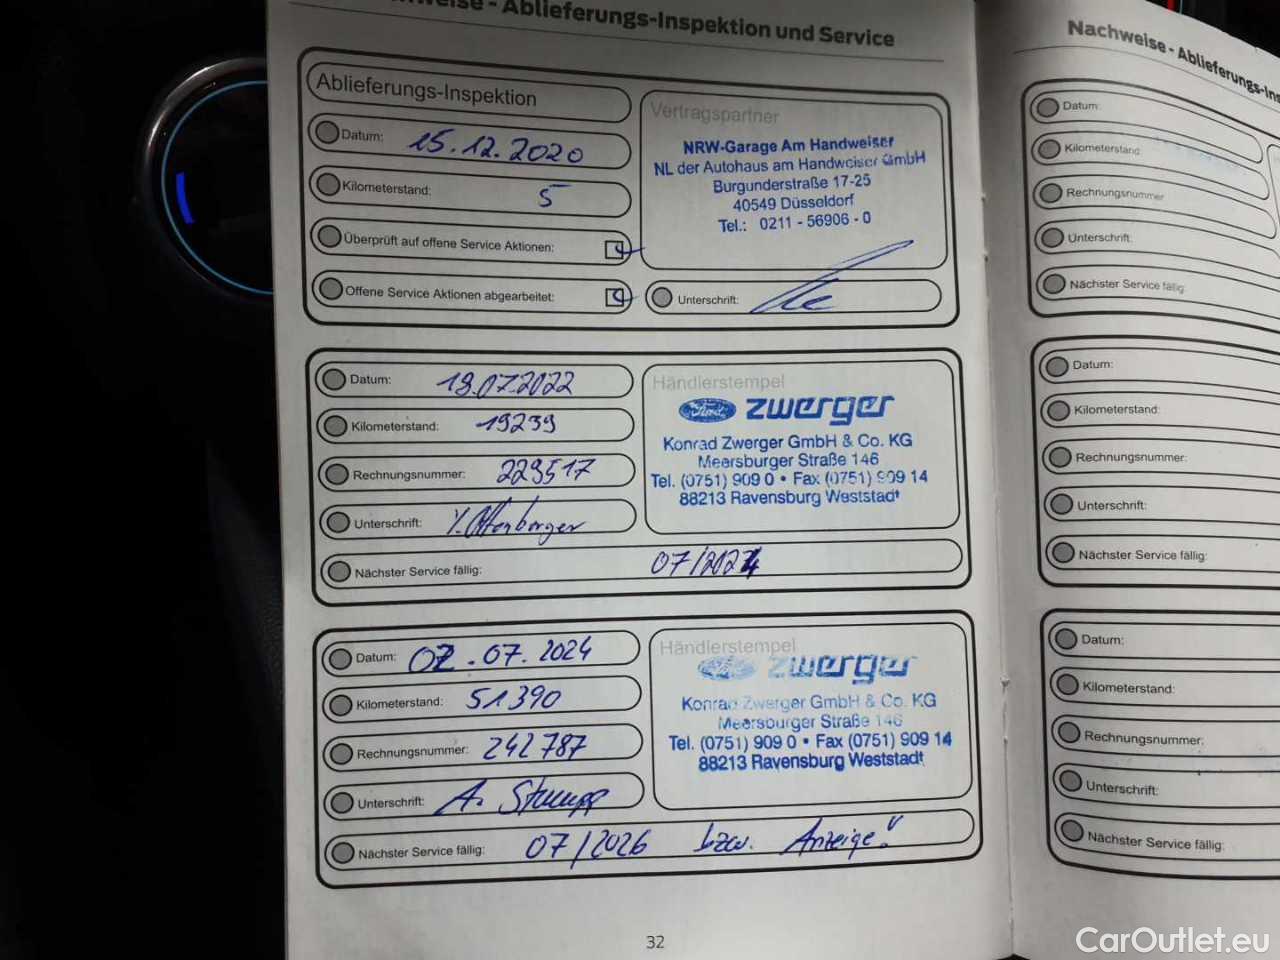 Nachweise - Ablieferungs-Inspektion und Service
Ablieferungs-Inspektion
Datum: 15.12.2020
Kilometerstand: 5
Überprüft auf offene Service Aktionen:
Offene Service Aktionen abgearbeitet:
Vertragspartner
NRW-Garage Am Handweiser
NL der Autohaus am Handweiser GmbH
Burgunderstraße 17-25
40549 Düsseldorf
Tel.: 0211 - 56906 - 0
Unterschrift:
Datum: 19.07.2022
Kilometerstand: 19239
Rechnungsnummer: 229517
Unterschrift:
Nächster Service fällig: 07/2024
Händlerstempel
Ford zwerger
Konrad Zwerger GmbH & Co. KG
Meersburger Straße 146
Tel. (0751) 909 0 • Fax (0751) 909 14
88213 Ravensburg Weststadt
Datum: 02.07.2024
Kilometerstand: 51390
Rechnungsnummer: 242787
Unterschrift: A. Stumpp
Nächster Service fällig: 07/2026 bzw. Anzeige!
Händlerstempel
zwerger
Konrad Zwerger GmbH & Co. KG
Meersburger Straße 146
Tel. (0751) 909 0 • Fax (0751) 909 14
88213 Ravensburg Weststadt
32
Nachweise - Ablieferungs-Ins
Datum:
Kilometerstand:
Rechnungsnummer
Unterschrift:
Nächster Service fällig:
Datum:
Kilometerstand:
Rechnungsnummer:
Unterschrift:
Nächster Service fällig:
Datum:
Kilometerstand:
Rechnungsnummer:
Unterschrift:
Nächster Service fällig:
CarOutlet.eu